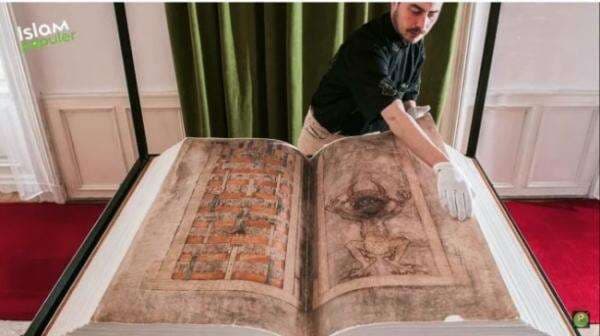 Islam
populer